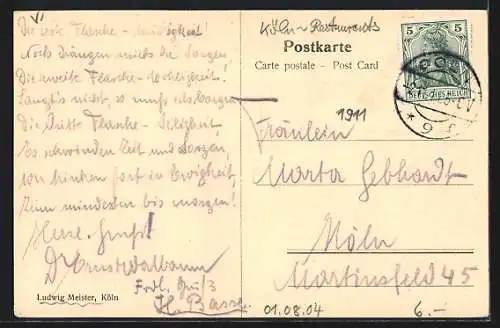 VI
Die erste Flasche -
Noch drängen mich die Sorgen.
Die zweite Flasche -
Langt's nicht, so muß ich borgen
Die Dritte Flasche - Seligkeit,
Es schwinden Zeit und Sorgen,
von hinten fort in Ewigkeit,
Zum mindesten bis morgen!
Herzl. Gruß!
Dr Ernst
Frdl. Gruß
H. Basse
Ludwig Meister, Köln
Köln - Restaurants
Postkarte
Carte postale - Post Card
5 5
DEUTSCHES REICH
1911
Fräulein
Marta Gebhardt
Köln
Martinsfeld 45
01.08.04
6.-